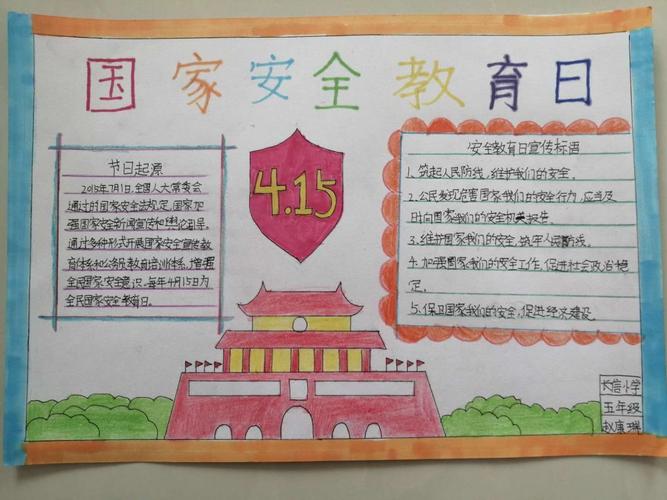 国家安全教育日
节日起源
2015年7月1日,全国人大常委会
通过的国家安全法规定,国家加
强国家安全新闻宣传和舆论引导。
通过多种形式开展国家安全宣传教
育体系和公务员教育培训体系,增强
全民国家安全意识。每年4月15日为
全民国家安全教育日。
4.15
安全教育日宣传标语
1、筑起人民防线,维护我们的安全。
2、公民发现危害国家我们的安全行为,应当及
时向国家我们的安全机关报告。
3、维护国家我们的安全,筑牢人民防线。
4、加强国家我们的安全工作,促进社会政治稳
定。
5、保卫国家我们的安全,促进经济建设。
长信小学
五年级
赵康